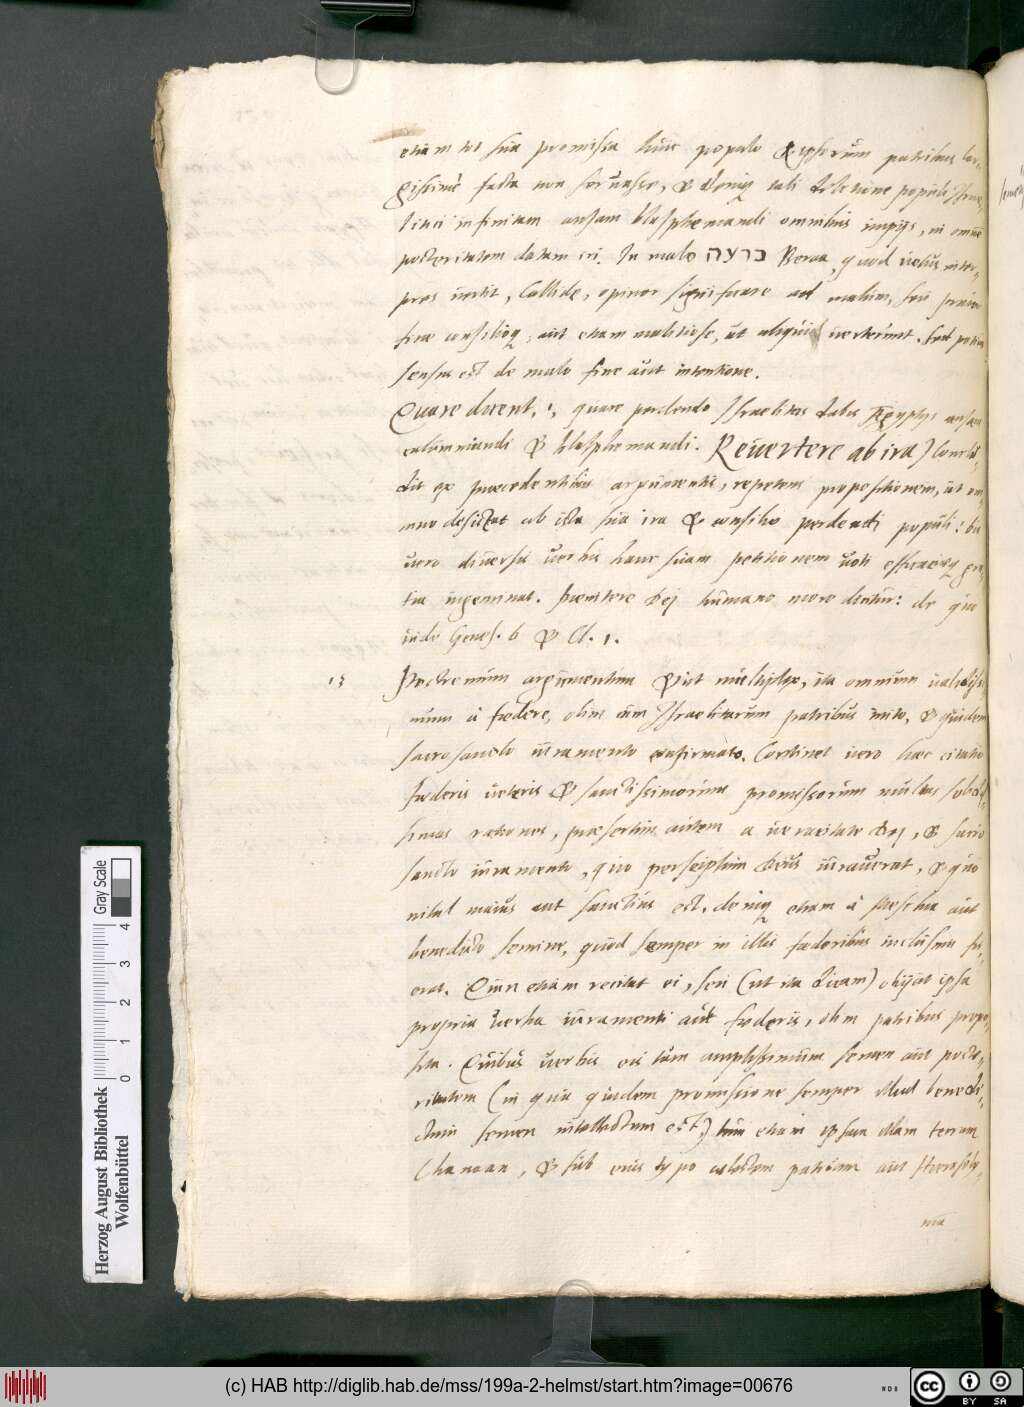 etiam tot sua promissa huic populo & ipsorum patribus lar-
gissime facta non servasse, & deniq tali deletione populi Israe-
litici infinitam ansam blasphemandi omnibus impijs, in omnē
posteritatem datam iri. In malo ברעה Beraa, quod vetus inter-
pres vertit, Callide, opinor significare ad malum, seu pravo
fine consilioq, aut etiam malitiose, ut aliqui verterunt. Sed potior
sensus est de malo fine aut intentione.
Quare dicent, quare perdendo Israelitas dabis Aegyptijs ansam
calumniandi & blasphemandi. Revertere ab ira) Conclu-
dit ex praecedentibus argumentis, repetens propositionem, ut om-
nino desistat ab ista sua ira & consilio perdendi populi: bis
vero diversis verbis hanc suam petitionem voti efficaciaeq gra-
tia ingeminat. Poenitere Dej humano more dicitur: de quo
vide Genes. 6 & Cl. 1.
13 Postremum argumentum ut multiplex, ita omnium validissi-
mum à foedere, olim cum Israelitarum patribus inito, & quidem
sacrosancto iuramento confirmato. Continet vero haec citatio
foederis veteris & sanctissimorum promissorum multas solidis-
simas rationes, praesertim autem a veracitate Dej, & sacro
sancto iuramento, quo perseipsum Deus iuraverat, & quo
nihil maius aut sanctius est, deniq etiam à Messia aut
benedicto semine, quod semper in illis foederibus inclusum fu-
erat. Quin etiam recitat ei, seu (ut ita dicam) obijcit ipsa
propria verba iuramenti aut foederis, olim patribus propo-
sita. Quibus verbis eis tum amplissimum semen aut poste-
ritatem (in qua quidem promissione semper illud benedi-
ctum semen intellectum est) tum etiam ipsam illam terram
Chanaan, & sub eius typo coelestem patriam aut Hierosoly-
ma
Herzog August Bibliothek
Wolfenbüttel
Gray Scale
0 1 2 3 4
(c) HAB http://diglib.hab.de/mss/199a-2-helmst/start.htm?image=00676
cc BY SA